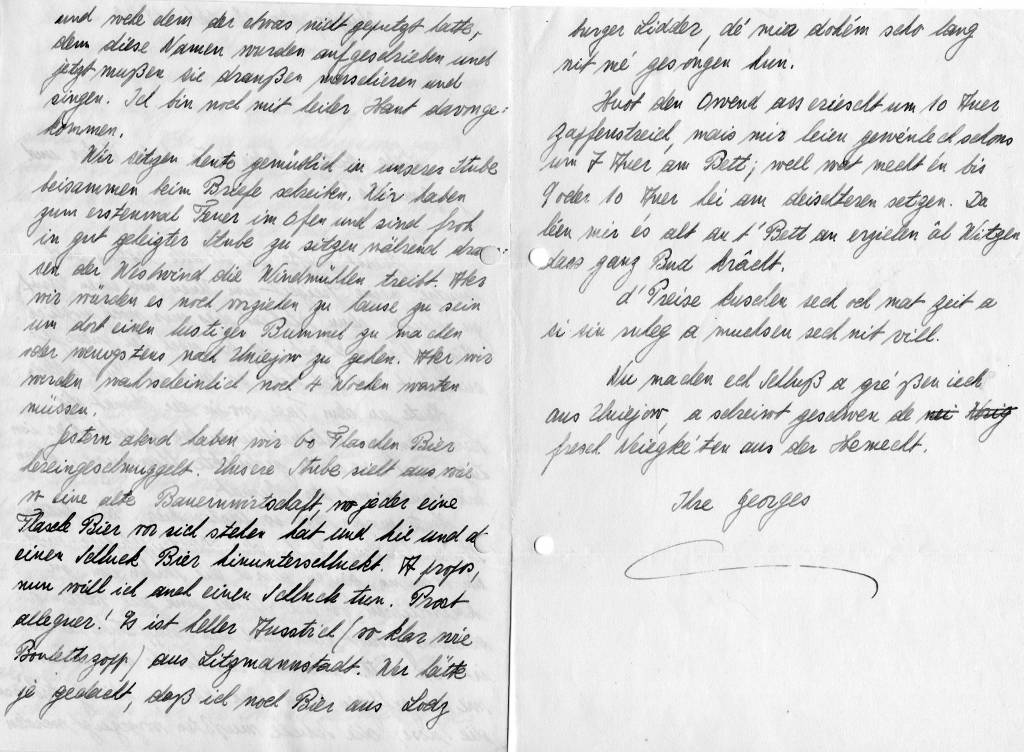 und wehe dem der etwas nicht geputzt hatte,
denn diese Namen wurden aufgeschrieben und
jetzt mußen sie draußen marschieren und
singen. Ich bin noch mit heiler Haut davonge-
kommen.
Wir sitzen heute gemütlich in unserer Stube
beisammen beim Briefe schreiben. Wir haben
zum erstenmal Feuer im Ofen und sind froh
in gut geheizter Stube zu sitzen während drau-
sen der Westwind die Windmühlen treibt. Aber
wir würden es noch vorziehen zu hause zu sein
um dort einen lustigen Bummel zu machen
oder wenigstens nach Uniejow zu gehen. Aber wir
werden wahrscheinlich noch 4 Wochen warten
müssen.
Gestern abend haben wir 60 Flaschen Bier
hereingeschmuggelt. Unsere Stube sieht aus wie
eine alte Bauernwirtschaft, wo jeder eine
Flasche Bier vor sich stehen hat und hie und d
einen Schluck Bier hinunterschluckt. A propos,
nun will ich auch einen Schluck tun. Prost
allegner! Es ist heller Ausstich (so klar wie
Boulettszopp) aus Litzmannstadt. Wer hätte
je gedacht, daß ich noch Bier aus Lodz
burger Lidder, dé mir dohém scho lang
nit mé gesongen hun.
Huot den Owend ass erischt um 10 Auer
Zapfenstreich, mais mir leien gewéntlech schons
um 7 Auer am Bett; well wat mecht én bis
9 oder 10 Auer hei am deischteren setzen. Da
léen mir és alt an t' Bett an erzielen âl Witzen
dass ganz Bud krâcht.
d' Preise kuschen sech och mat Zeit a
si sin rueg a mucksen sech nit vill.
Nu machen ech Schluß a gréßen iech
aus Uniejow, a schreiwt geschwen de
fresch Neiegkéten aus der Hemecht.
Ihre Georges